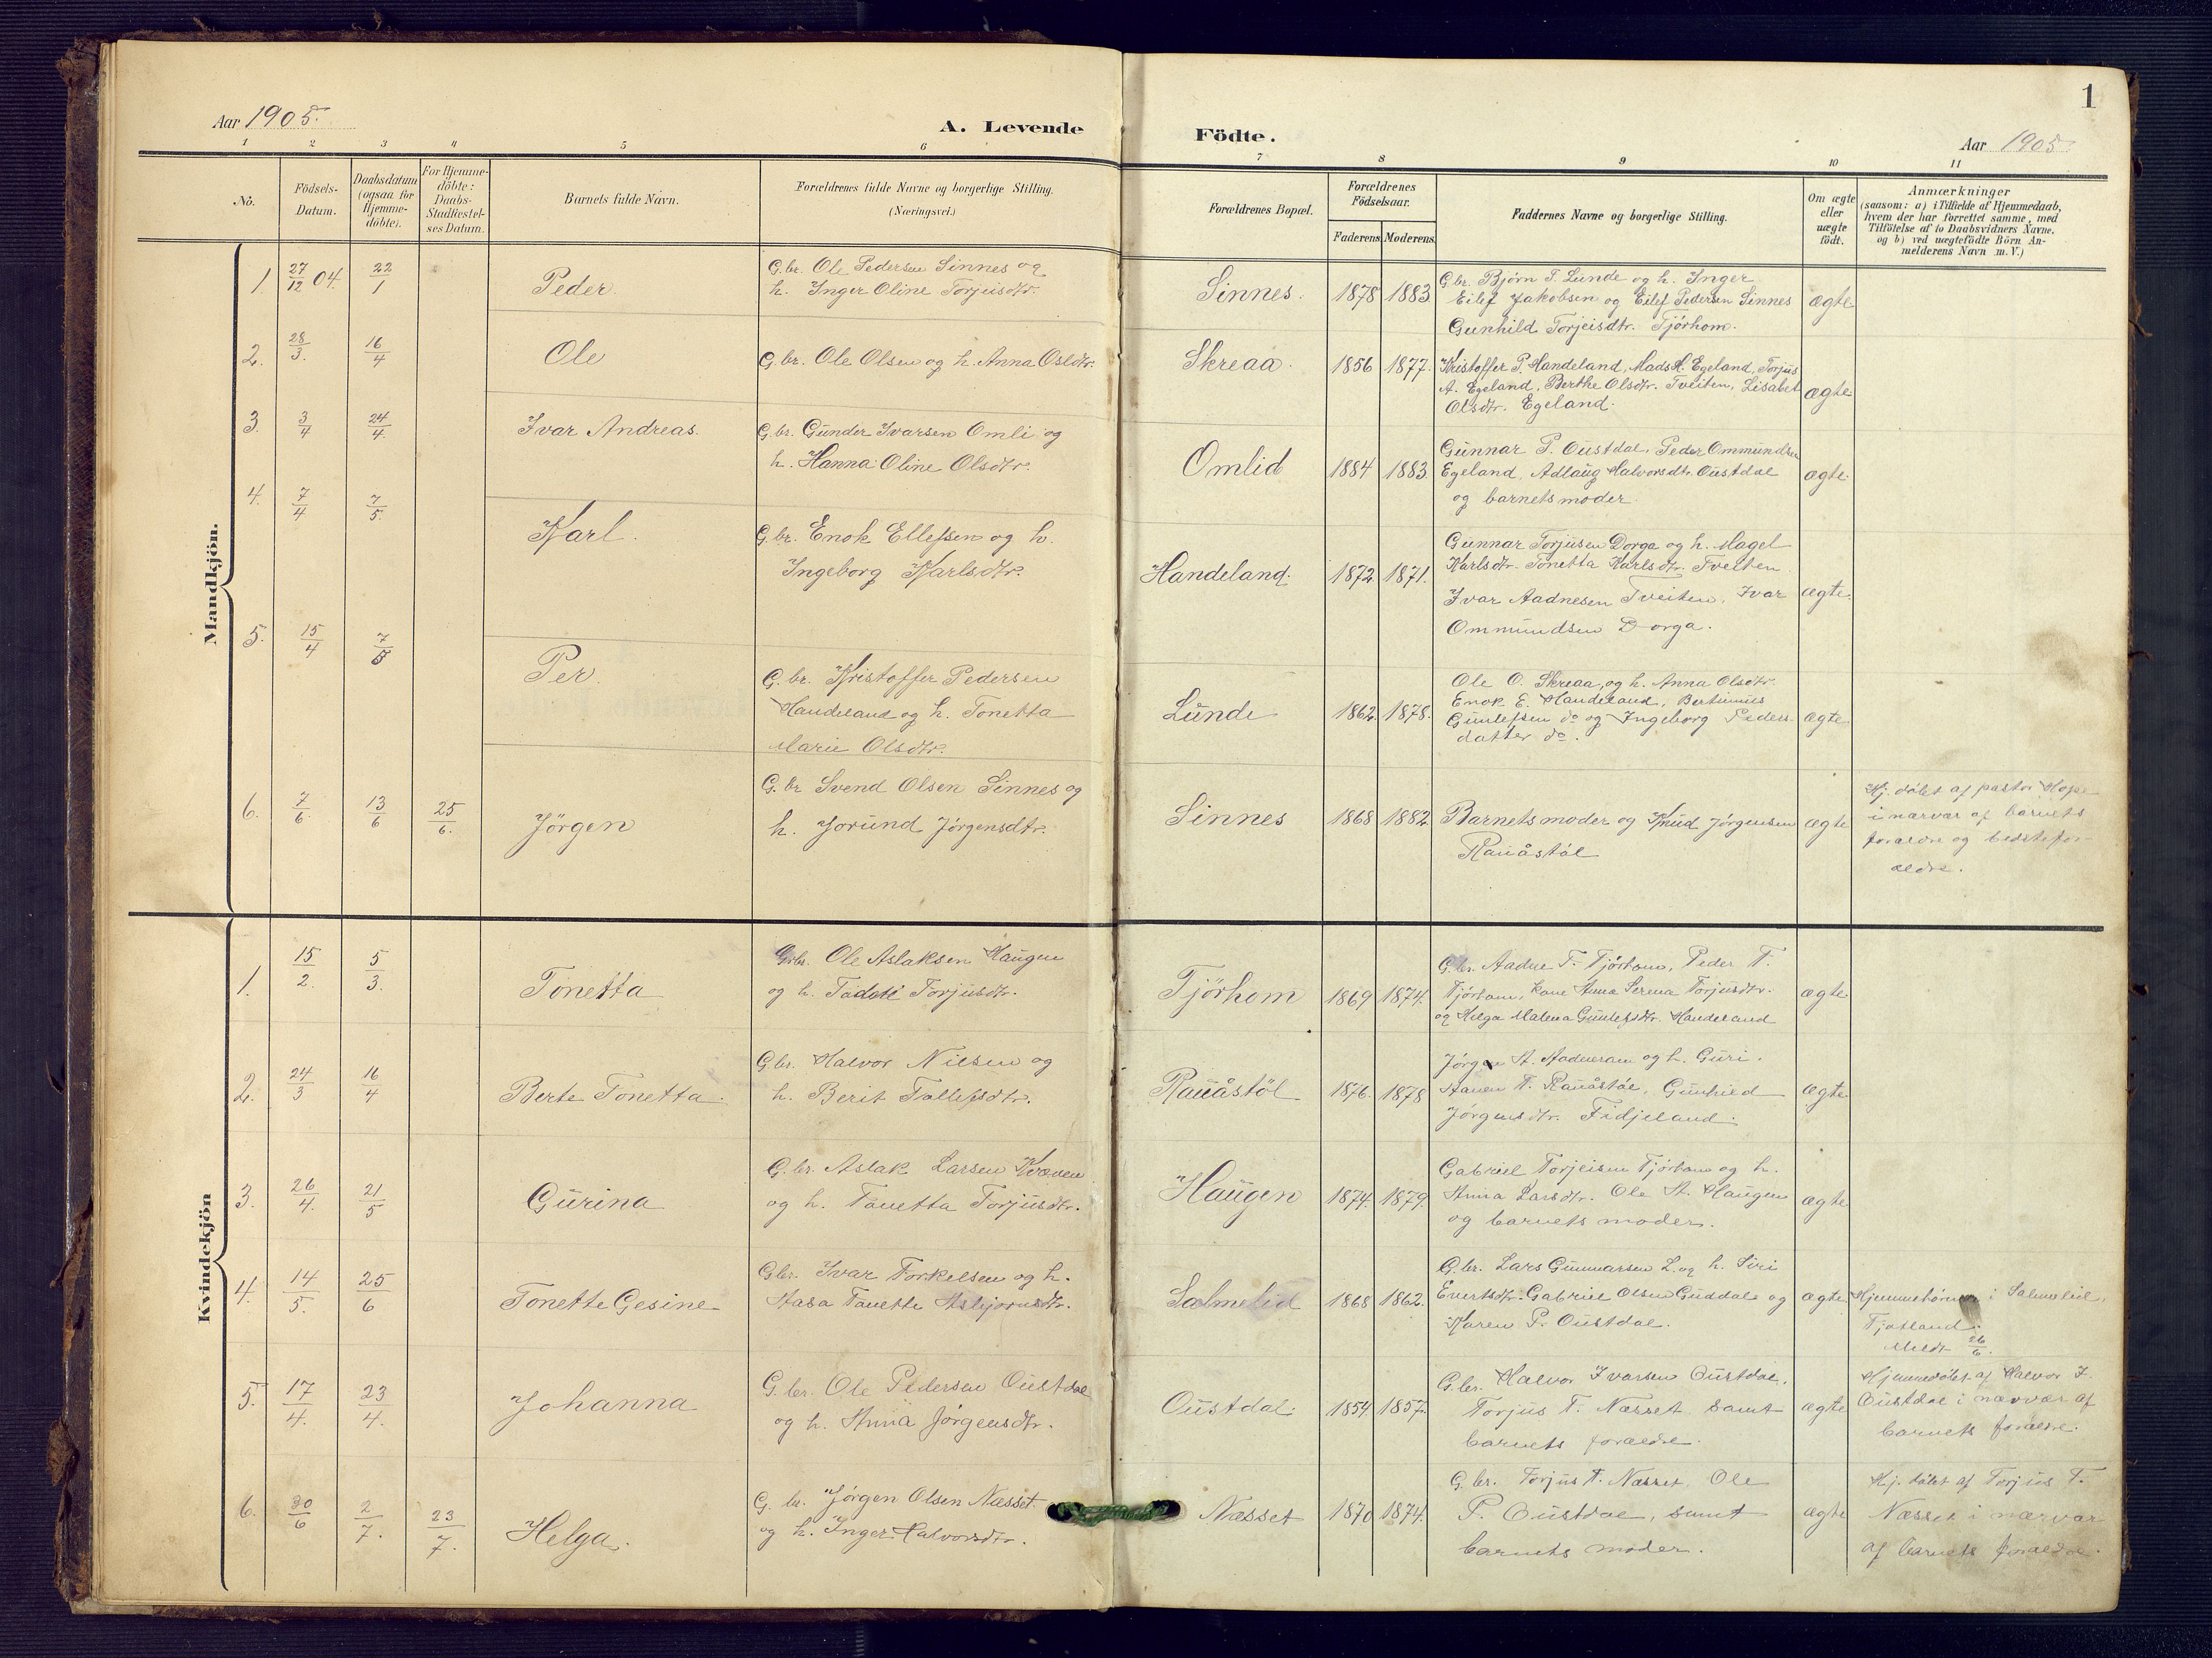 1
Aar 1905.
A. Levende
Födte.
Aar 1905
1 2 3 4 5 6 7 8 9 10 11
No.
Födsels-
Datum.
Daabsdatum
(ogsaa för
Hjemme-
döbte).
For Hjemme-
döbte:
Daabs-
Stadfæstel-
ses Datum.
Barnets fulde Navn.
Forældrenes fulde Navne og borgerlige Stilling.
(Næringsvei.)
Forældrenes Bopæl.
Forældrenes
Födselsaar.
Faderens Moderens
Faddernes Navne og borgerlige Stilling.
Om ægte
eller
uægte
födt.
Anmærkninger
(saasom: a) i Tilfælde af Hjemmedaab,
hvem der har forrettet samme, med
Tilföielse af to Daabsvidners Navne,
og b) ved uægtefödte Börn An-
melderens Navn m. V.)
Mandkjön.
1 27/12 04. 22/1 Peder.
G.br. Ole Pedersen Sinnes og
h. Inger Oline Torjusdtr.
Sinnes. 1878 1883
G.br. Bjørn T. Lunde og h. Inger
Eilef Jakobsen og Eilef Pedersen Sinnes
Gunhild Torjeisdtr. Tjórhom.
ægte
2. 28/3. 16/4 Ole
G.br. Ole Olsen og h. Anna Osldtr.
Skreaa. 1856 1877.
Kristoffer P. Handeland, Mads H. Egeland, Torjus
A. Egeland, Berthe Olsdtr. Tveiten, Lisabet
Olsdtr. Egeland.
ægte
3. 3/4 24/4. Ivar Andreas.
G.br. Gunder Ivarsen Omli og
h. Hanna Oline Olsdtr.
Omlid 1884 1883.
Gunnar P. Oustdal, Peder Ommundsen
Egeland, Adlaug Halvorsdtr. Oustdal
og barnets moder.
ægte.
4. 7/4 7/5. Karl.
G.br. Enok Ellefsen og h.
Ingeborg Karlsdtr.
Handeland. 1872. 1871.
Gunnar Torjusen Dorga og h. Magel
Karlsdtr. Tonetta Karlsdtr. Tveiten
Ivar Aadnesen Tveiten, Ivar
Ommundsen Dorga.
ægte.
5. 15/4 7/5 Per.
G.br. Kristoffer Pedersen
Handeland og h. Tonetta
Marie Olsdtr.
Lunde 1862. 1878.
Ole O. Skreaa, og h. Anna Olsdtr.
Enok E. Handeland, Bertinius
Gunlefsen do og Ingeborg Peders-
datter do.
ægte
6. 7/6. 13/6 25/6. Jörgen
G.br Svend Olsen Sinnes og
h. Jorund Jörgensdtr.
Sinnes 1868 1882.
Barnets moder og Knud Jörgensen
Rauåstöl
ægte
Hj. döbt af pastor Hope
i nærvær af barnets
forældre og bedstefor-
ældre.
Kvindekjön
1. 15/2. 5/3. Tonetta
G.br. Ole Aslaksen Haugen
og h. Torjusdtr.
Tjörhom 1869 1874.
G.br. Aadne T. Tjörhom, Peder T.
Tjörhom, kone Anna Serena Torjusdtr.
og Helga Malena Gunlefsdtr. Handeland
ægte.
2. 24/3 16/4 Berte Tonetta.
G.br. Halvor Nilsen og
h. Berit Tollefsdtr.
Rauåstöl 1876. 1878
Jörgen A. Aadneram og h. Guri.
T. Rauåstöl, Gunhild
Jörgensdtr. Fidjeland.
ægte.
3. 26/4. 21/5 Gurina
G.br. Aslak Larsen Kvæven
og h. Tonetta Torjusdtr.
Haugen 1874. 1879.
Gabriel Torjeisen Tjörhom og h.
Anna Larsdtr. Ole A. Haugen
og barnets moder.
ægte.
4. 14/5. 25/6 Tonette Gesine
G.br. Ivar Torkelsen og h.
Aasa Tonette Asbjornsdtr.
Salmelid 1868 1862.
G.br. Lars Gunnarsen L. og h. Siri
Evertsdtr. Gabriel Olsen Guddal og
Karen P. Oustdal.
ægte
Hjemmehörende i Salmelid,
Fjotland.
Meldt 26/6.
5. 17/4. 23/4. Johanna
G.br. Ole Pedersen Oustdal
og h. Anna Jörgensdtr.
Oustdal. 1854. 1857.
G.br. Halvor Ivarsen Oustdal,
Torjus T. Næsset samt
barnets forældre.
ægte
Hjemmedöbt af Halvor I.
Oustdal i nærvær af
barnets forældre.
6. 30/6 2/7. 23/7. Helga.
G. br. Jörgen Olsen Næsset
og h. Inger Halvorsdtr.
Næsset 1870 1874.
G.br. Torjus T. Næsset, Ole
P. Oustdal, samt
barnets moder.
ægte
Hj. döbt af Torjus T.
Næsset i nærvær
af barnets forældre.